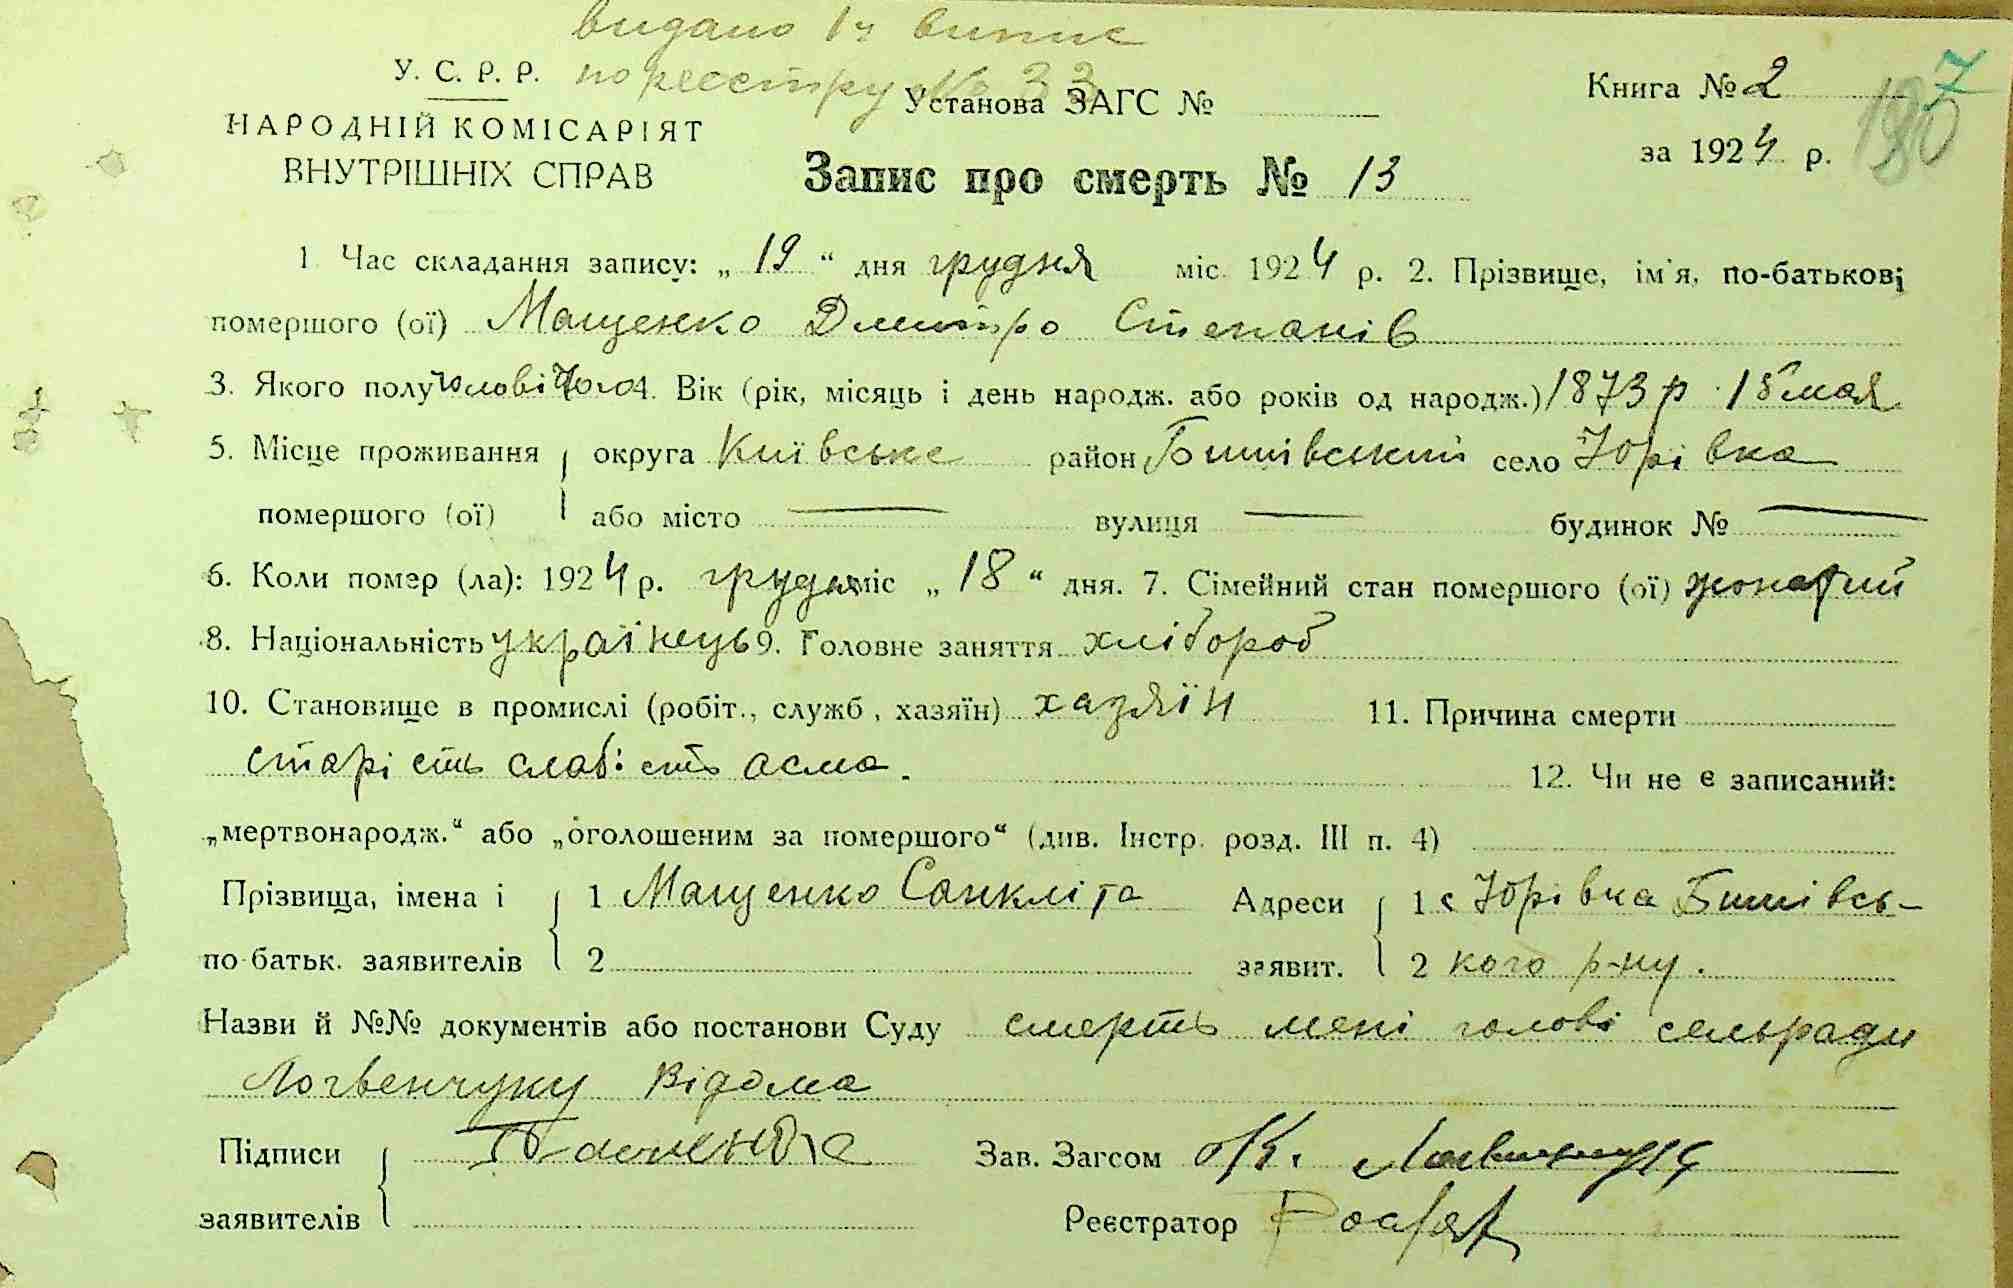 видано 1 ч випис
У. С. Р. Р. по реєстру № 33
Установа ЗАГС №
Книга № 2
7
180
НАРОДНІЙ КОМІСАРІЯТ
ВНУТРІШНІХ СПРАВ
за 1924 р.
Запис про смерть № 13
1. Час складання запису: „ 19 “ дня грудня міс. 1924 р. 2. Прізвище, ім'я, по-батькові
помершого (ої) Мащенко Дмитро Степанів
3. Якого полу чоловічого 4. Вік (рік, місяць і день народж. або років од народж.) 1873 р. 15 мая
5. Місце проживання округа Київське район Бишівський село Юрівка
помершого (ої) або місто — вулиця — будинок № —
6. Коли помер (ла): 1924 р. грудня міс „ 18 “ дня. 7. Сімейний стан помершого (ої) жонатий
8. Національність українець 9. Головне заняття хлібороб
10. Становище в промислі (робіт., служб., хазяїн) хазяїн 11. Причина смерти
старість слабість асма.
12. Чи не є записаний:
„мертвонародж.“ або „оголошеним за помершого“ (див. Інстр. розд. III п. 4)
Прізвища, імена і 1 Мащенко Санкліта Адреси 1 с Юрівка Бишівсь-
по батьк. заявителів 2 заявит. 2 кого р-ну.
Назви й №№ документів або постанови Суду смерть мені голові сельради
Логвенчуку відома
Підписи Зав. Загсом
заявителів Реєстратор